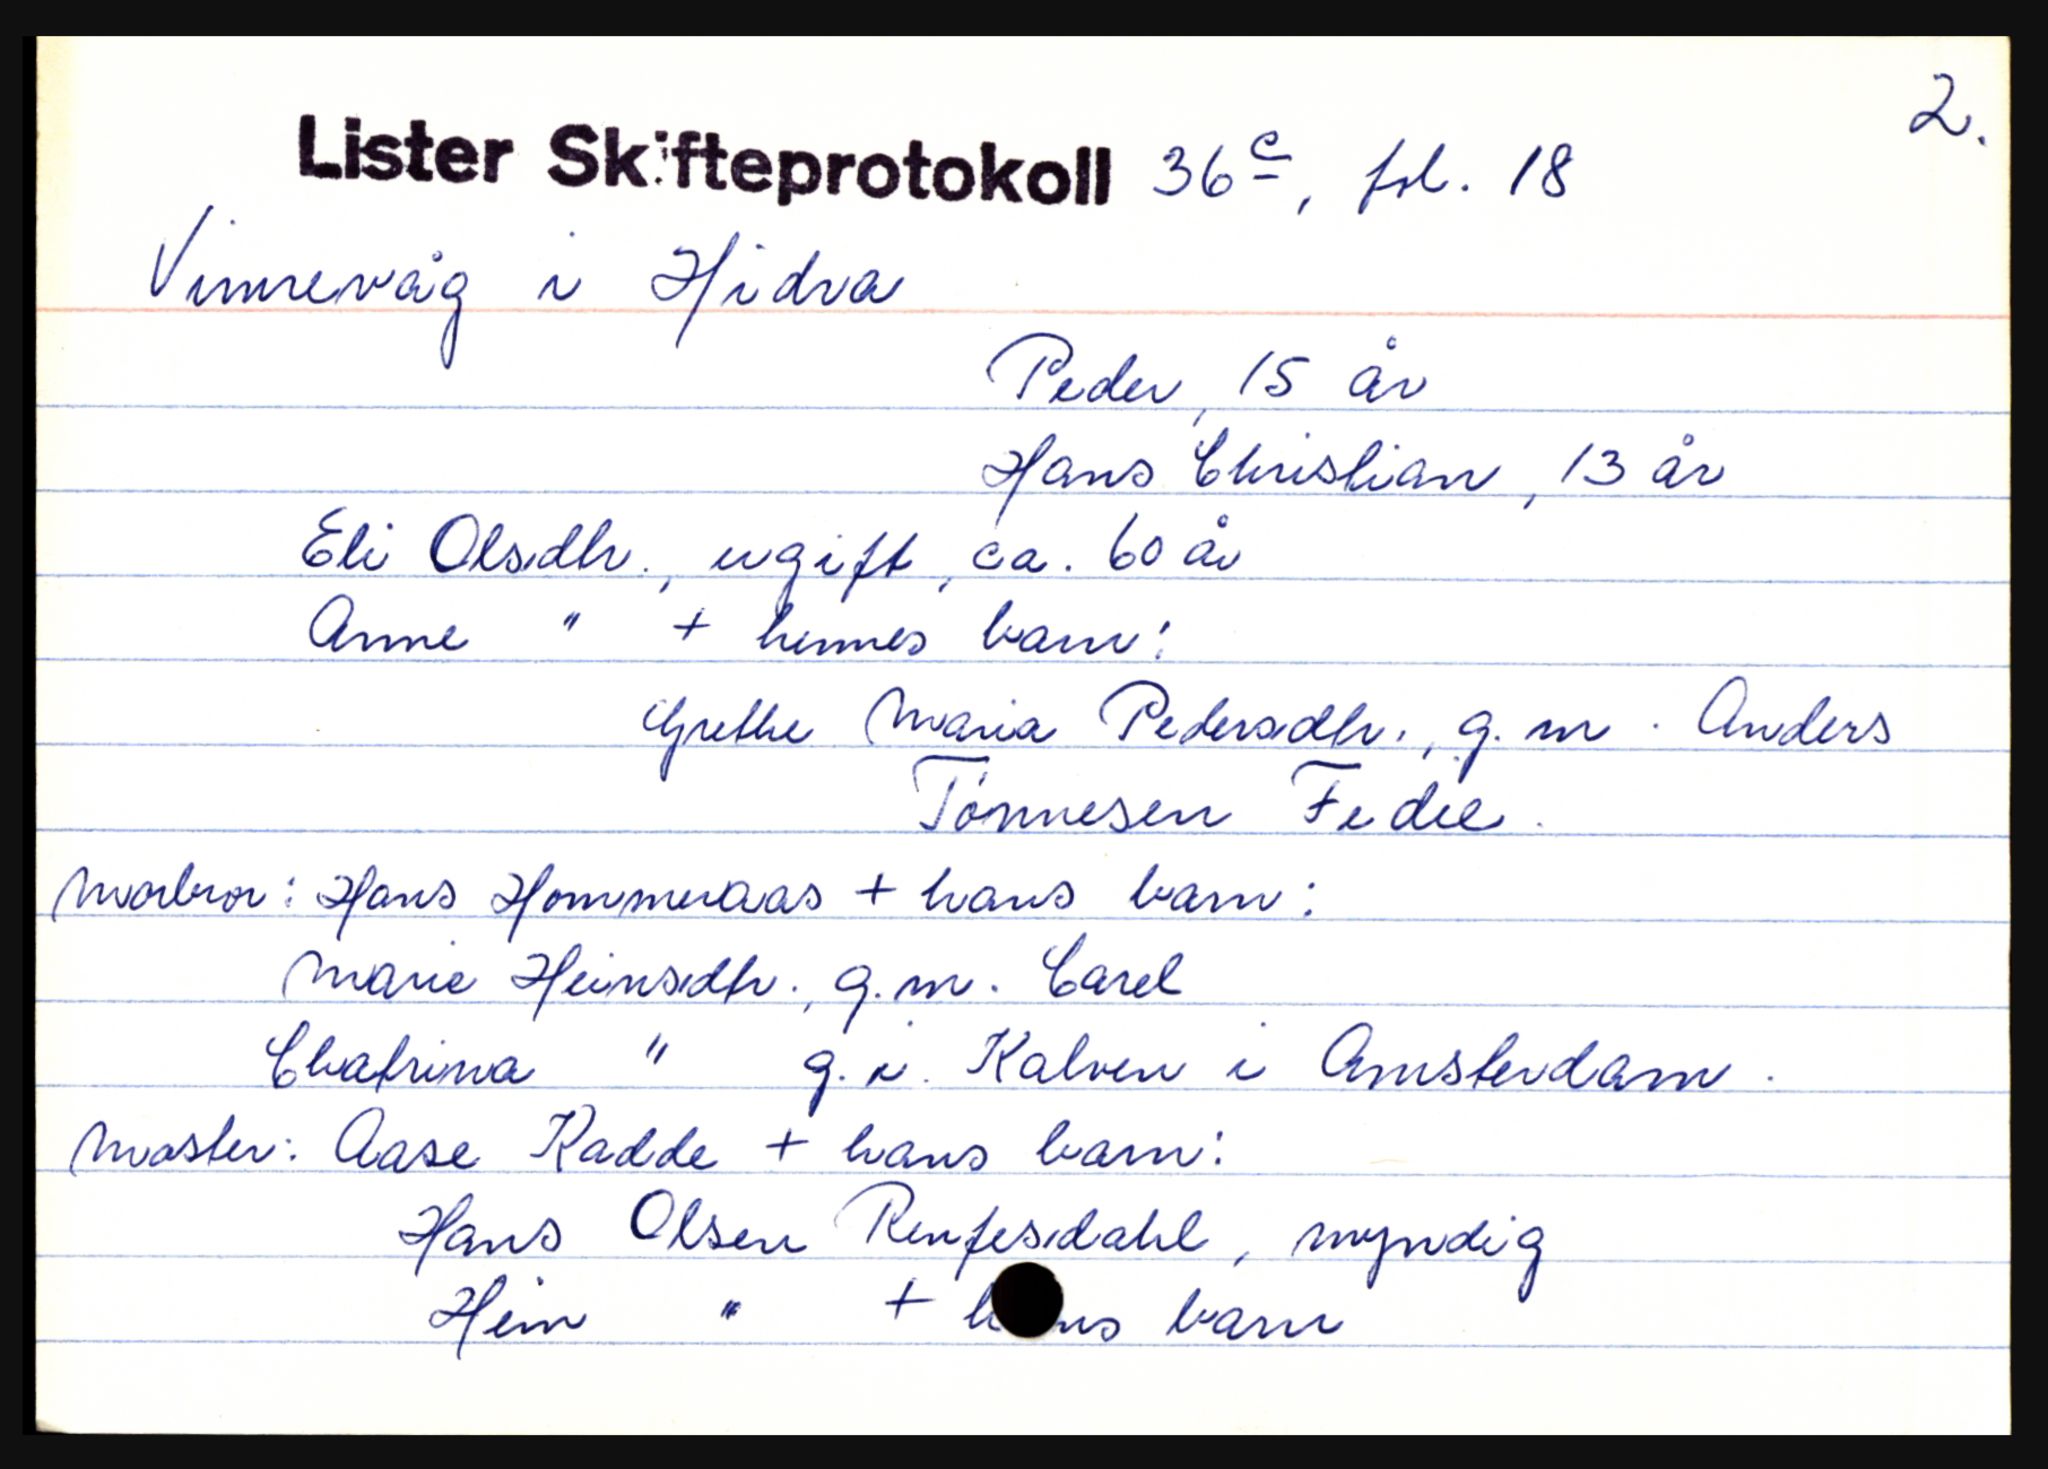 2.
Lister Skifteprotokoll 36c, fol. 18
Vinnevåg i Hidra
Peder, 15 år
Hans Christian, 13 år
Eli Olsdtr., ugift, ca. 60 år
Anne " + hennes barn:
Grethe Maria Pedersdtr., g. m. Anders
Tönnesen Fedee.
Morbror: Hans Hommeraas + hans barn:
Marie Heinsdtr., g. m. Carel
Chatrina " g. i. Kalven i Amsterdam.
Moster: Aase Kadde + hans barn:
Hans Olsen Renfesdahl, myndig
Hein " + hans barn